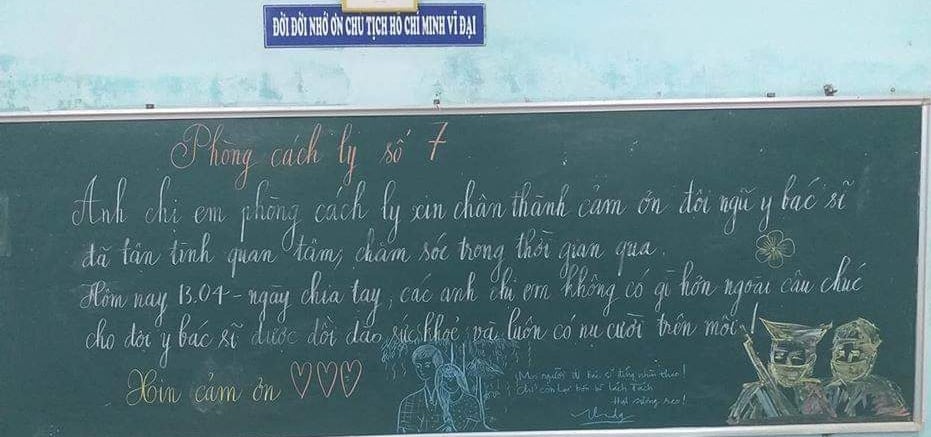 ĐỜI ĐỜI NHỚ ƠN CHỦ TỊCH HỒ CHÍ MINH VĨ ĐẠI
Phòng cách ly số 7
Anh chị em phòng cách ly xin chân thành cảm ơn đội ngũ y bác sĩ
đã tận tình quan tâm, chăm sóc trong thời gian qua.
Hôm nay 13.04 - ngày chia tay, các anh chị em không có gì hơn ngoài câu chúc
cho đội y bác sĩ được dồi dào sức khoẻ và luôn có nụ cười trên môi!
Xin cảm ơn ♡♡♡
Mọi người đi bác sĩ đứng nhìn theo!
Chỉ còn lại bốn bề lách tách